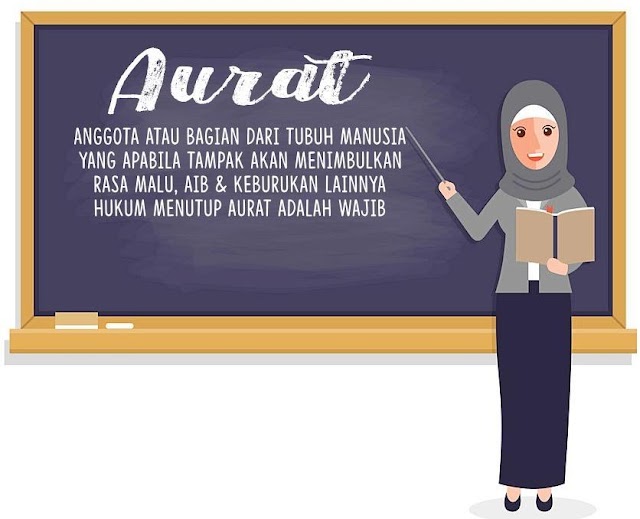 Aurat
ANGGOTA ATAU BAGIAN DARI TUBUH MANUSIA
YANG APABILA TAMPAK AKAN MENIMBULKAN
RASA MALU, AIB & KEBURUKAN LAINNYA
HUKUM MENUTUP AURAT ADALAH WAJIB